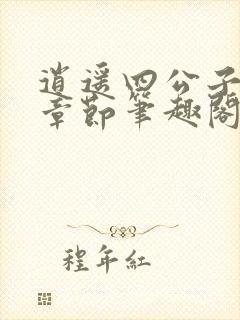 逍遥四公子
章節筆趣閣
程年紅